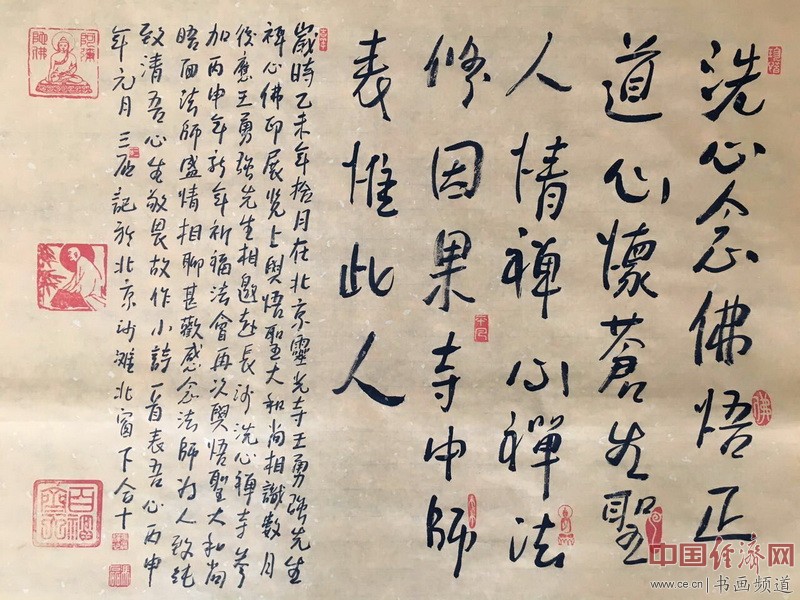 洗心念佛悟正
道心懷蒼生聖
人情禅心禪法
修因果寺中師
表惟此人
歲時乙未年拾月在北京靈光寺王勇强先生
禅心佛印展览上與悟聖大和尚相識数月
後應王勇强先生相邀赴長沙洗心禅寺参
加丙申年新年祈福法會再次與悟聖大和尚
晤面法師盛情相聊甚歡感念法師为人致纯
致清吾心生敬畏故作小詩一首表吾心丙申
年元月三記於北京沙滩北窗下合十
阿彌陀佛
佛
中国经济网
www.ce.cn 书画频道